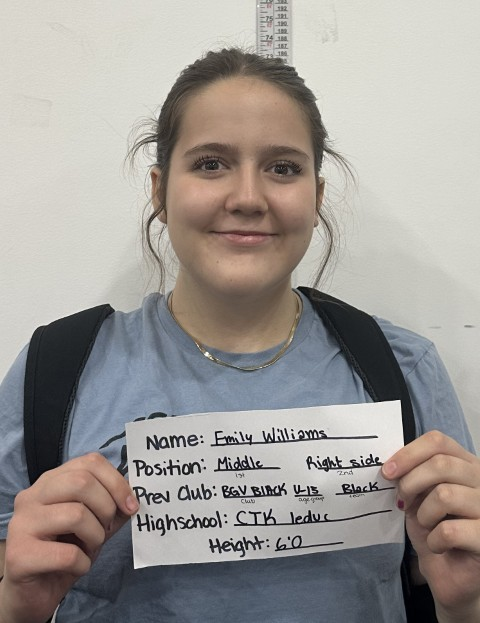 Name: Emily Williams
Position: Middle Right side
1st 2nd
Prev Club: BGV BLACK U-15 Black
Club age group Team
Highschool: CTK leduc
Height: 6'0